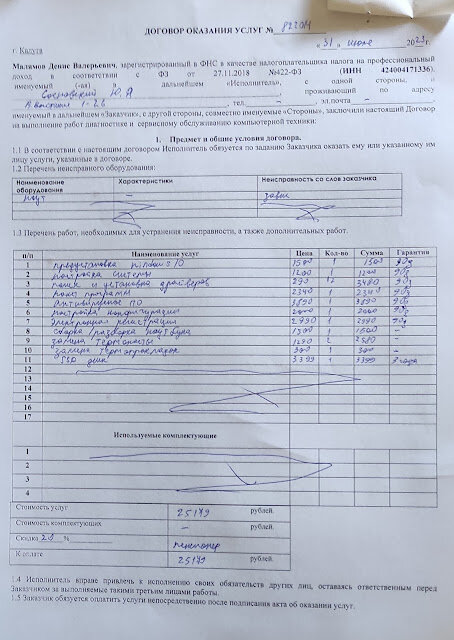 ДОГОВОР ОКАЗАНИЯ УСЛУГ №
г. Калуга
« 31 » июля 2023г.
Малямов Денис Валерьевич, зарегистрированный в ФНС в качестве налогоплательщика налога на профессиональный
доход в соответствии с ФЗ от 27.11.2018 №422-ФЗ (ИНН 424004171336),
именуемый (-ая) в дальнейшем «Исполнитель», с одной стороны, и
Сосновский Ю.Я , проживающий по адресу
1-26 , тел. – , эл.почта –
именуемый в дальнейшем «Заказчик», с другой стороны, совместно именуемые «Стороны», заключили настоящий Договор
на выполнение работ диагностике и сервисному обслуживанию компьютерной техники:
1. Предмет и общие условия договора.
1.1 В соответствии с настоящим договором Исполнитель обязуется по заданию Заказчика оказать ему или указанному им
лицу услуги, указанные в договоре.
1.2 Перечень неисправного оборудования:
Наименование оборудования Характеристики Неисправность со слов заказчика
ноут – завис
1.3 Перечень работ, необходимых для устранения неисправности, а также дополнительных работ.
п/п Наименование услуг Цена Кол-во Сумма Гарантия
1 предустановка 10 1500 1 1500
2 настройка системы 1200 1 1200
3 поиск и установка драйверов 290 12 3480
4 пакет программ 2340 1 2340
5 Антивирусное ПО 3890 1 3890
6 настройка конфигурации 2000 1 2000
7 Электронная регистрация 2990 1 2990
8 сборка/разборка ноутбука 1500 1 1500 –
9 замена термопасты 1290 2 2580 –
10 замена термопрокладок 300 1 300 –
11 SSD диск 3399 1 3399 3 года
12
13
14
15
16
17
Используемые комплектующие
1
2
3
4
Стоимость услуг 25179 рублей.
Стоимость комплектующих – рублей.
Скидка 20 % пенсионер
К оплате 25179 рублей.
1.4 Исполнитель вправе привлечь к исполнению своих обязательств других лиц, оставаясь ответственным перед
Заказчиком за выполняемые такими третьим лицами работы.
1.5 Заказчик обязуется оплатить услуги непосредственно после подписания акта об оказании услуг.